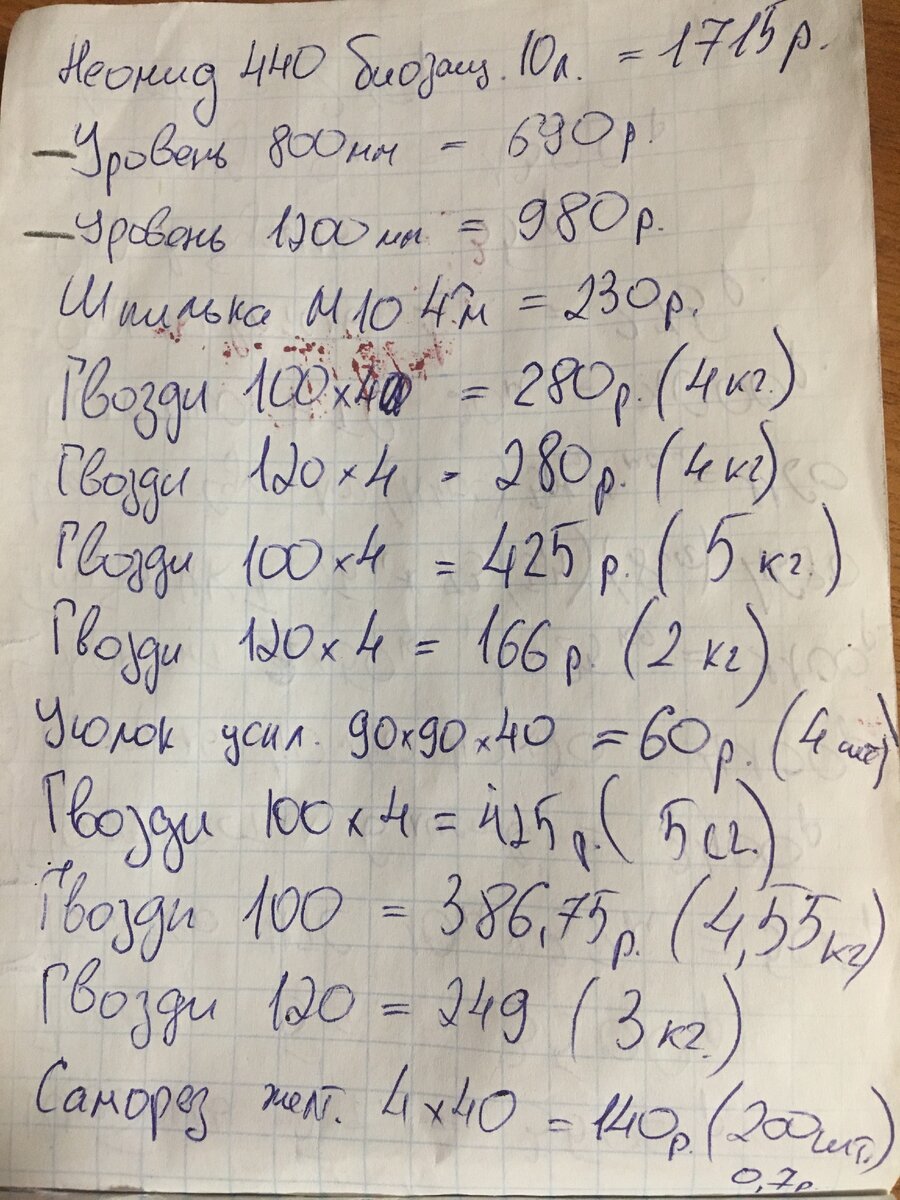 Неонид 440 биозащ. 10л. = 1715р.
– Уровень 800мм = 690р.
– Уровень 1200мм = 980р.
Шпилька М10 4м = 230р.
Гвозди 100×4 = 280р. (4кг.)
Гвозди 120×4 - 280р. (4кг)
Гвозди 100×4 = 425р. (5кг.)
Гвозди 120×4 = 166р. (2кг)
Уголок усил. 90×90×40 = 60р. (4шт)
Гвозди 100×4 = 425р. (5кг.)
Гвозди 100 = 386,75р. (4,55кг)
Гвозди 120 = 249 (3кг.)
Саморез желт. 4×40 = 140р. (200шт.)
0,7р